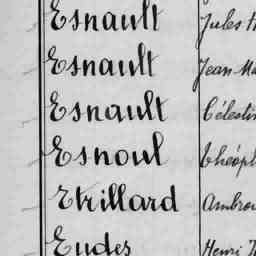 Esnault Jules
Esnault Jean Ma
Esnault Célestin
Esnoul Théoph
Etrillard Ambro
Eudes Henri